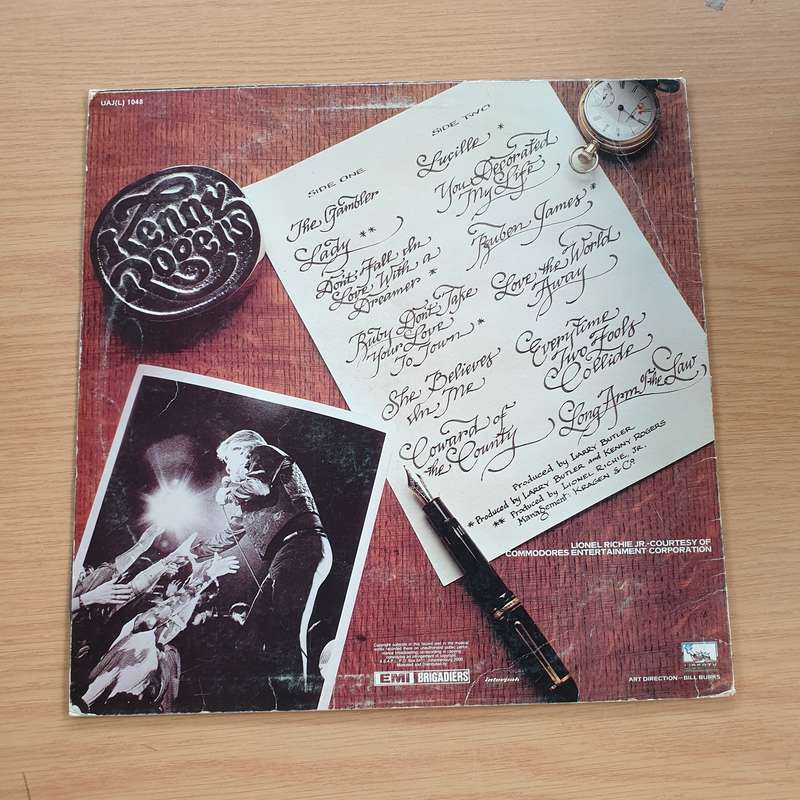 UAJ(L) 1048
Kenny
Rogers
SIDE ONE
The Gambler
Lady **
Don't Fall In
Love With a
Dreamer *
Ruby Don't Take
Your Love
To Town *
She Believes
In Me
Coward of
the County
SIDE TWO
Lucille *
You Decorated
My Life
Reuben James *
Love the World
Away
Everytime
Two Fools
Collide
Long Arm of the Law
Produced by LARRY BUTLER
* Produced by LARRY BUTLER and KENNY ROGERS
** Produced by LIONEL RICHIE, JR.
Management: KRAGEN & CO.
LIONEL RICHIE JR.-COURTESY OF
COMMODORES ENTERTAINMENT CORPORATION
EMI BRIGADIERS
interpak
LIBERTY
ART DIRECTION – BILL BURKS